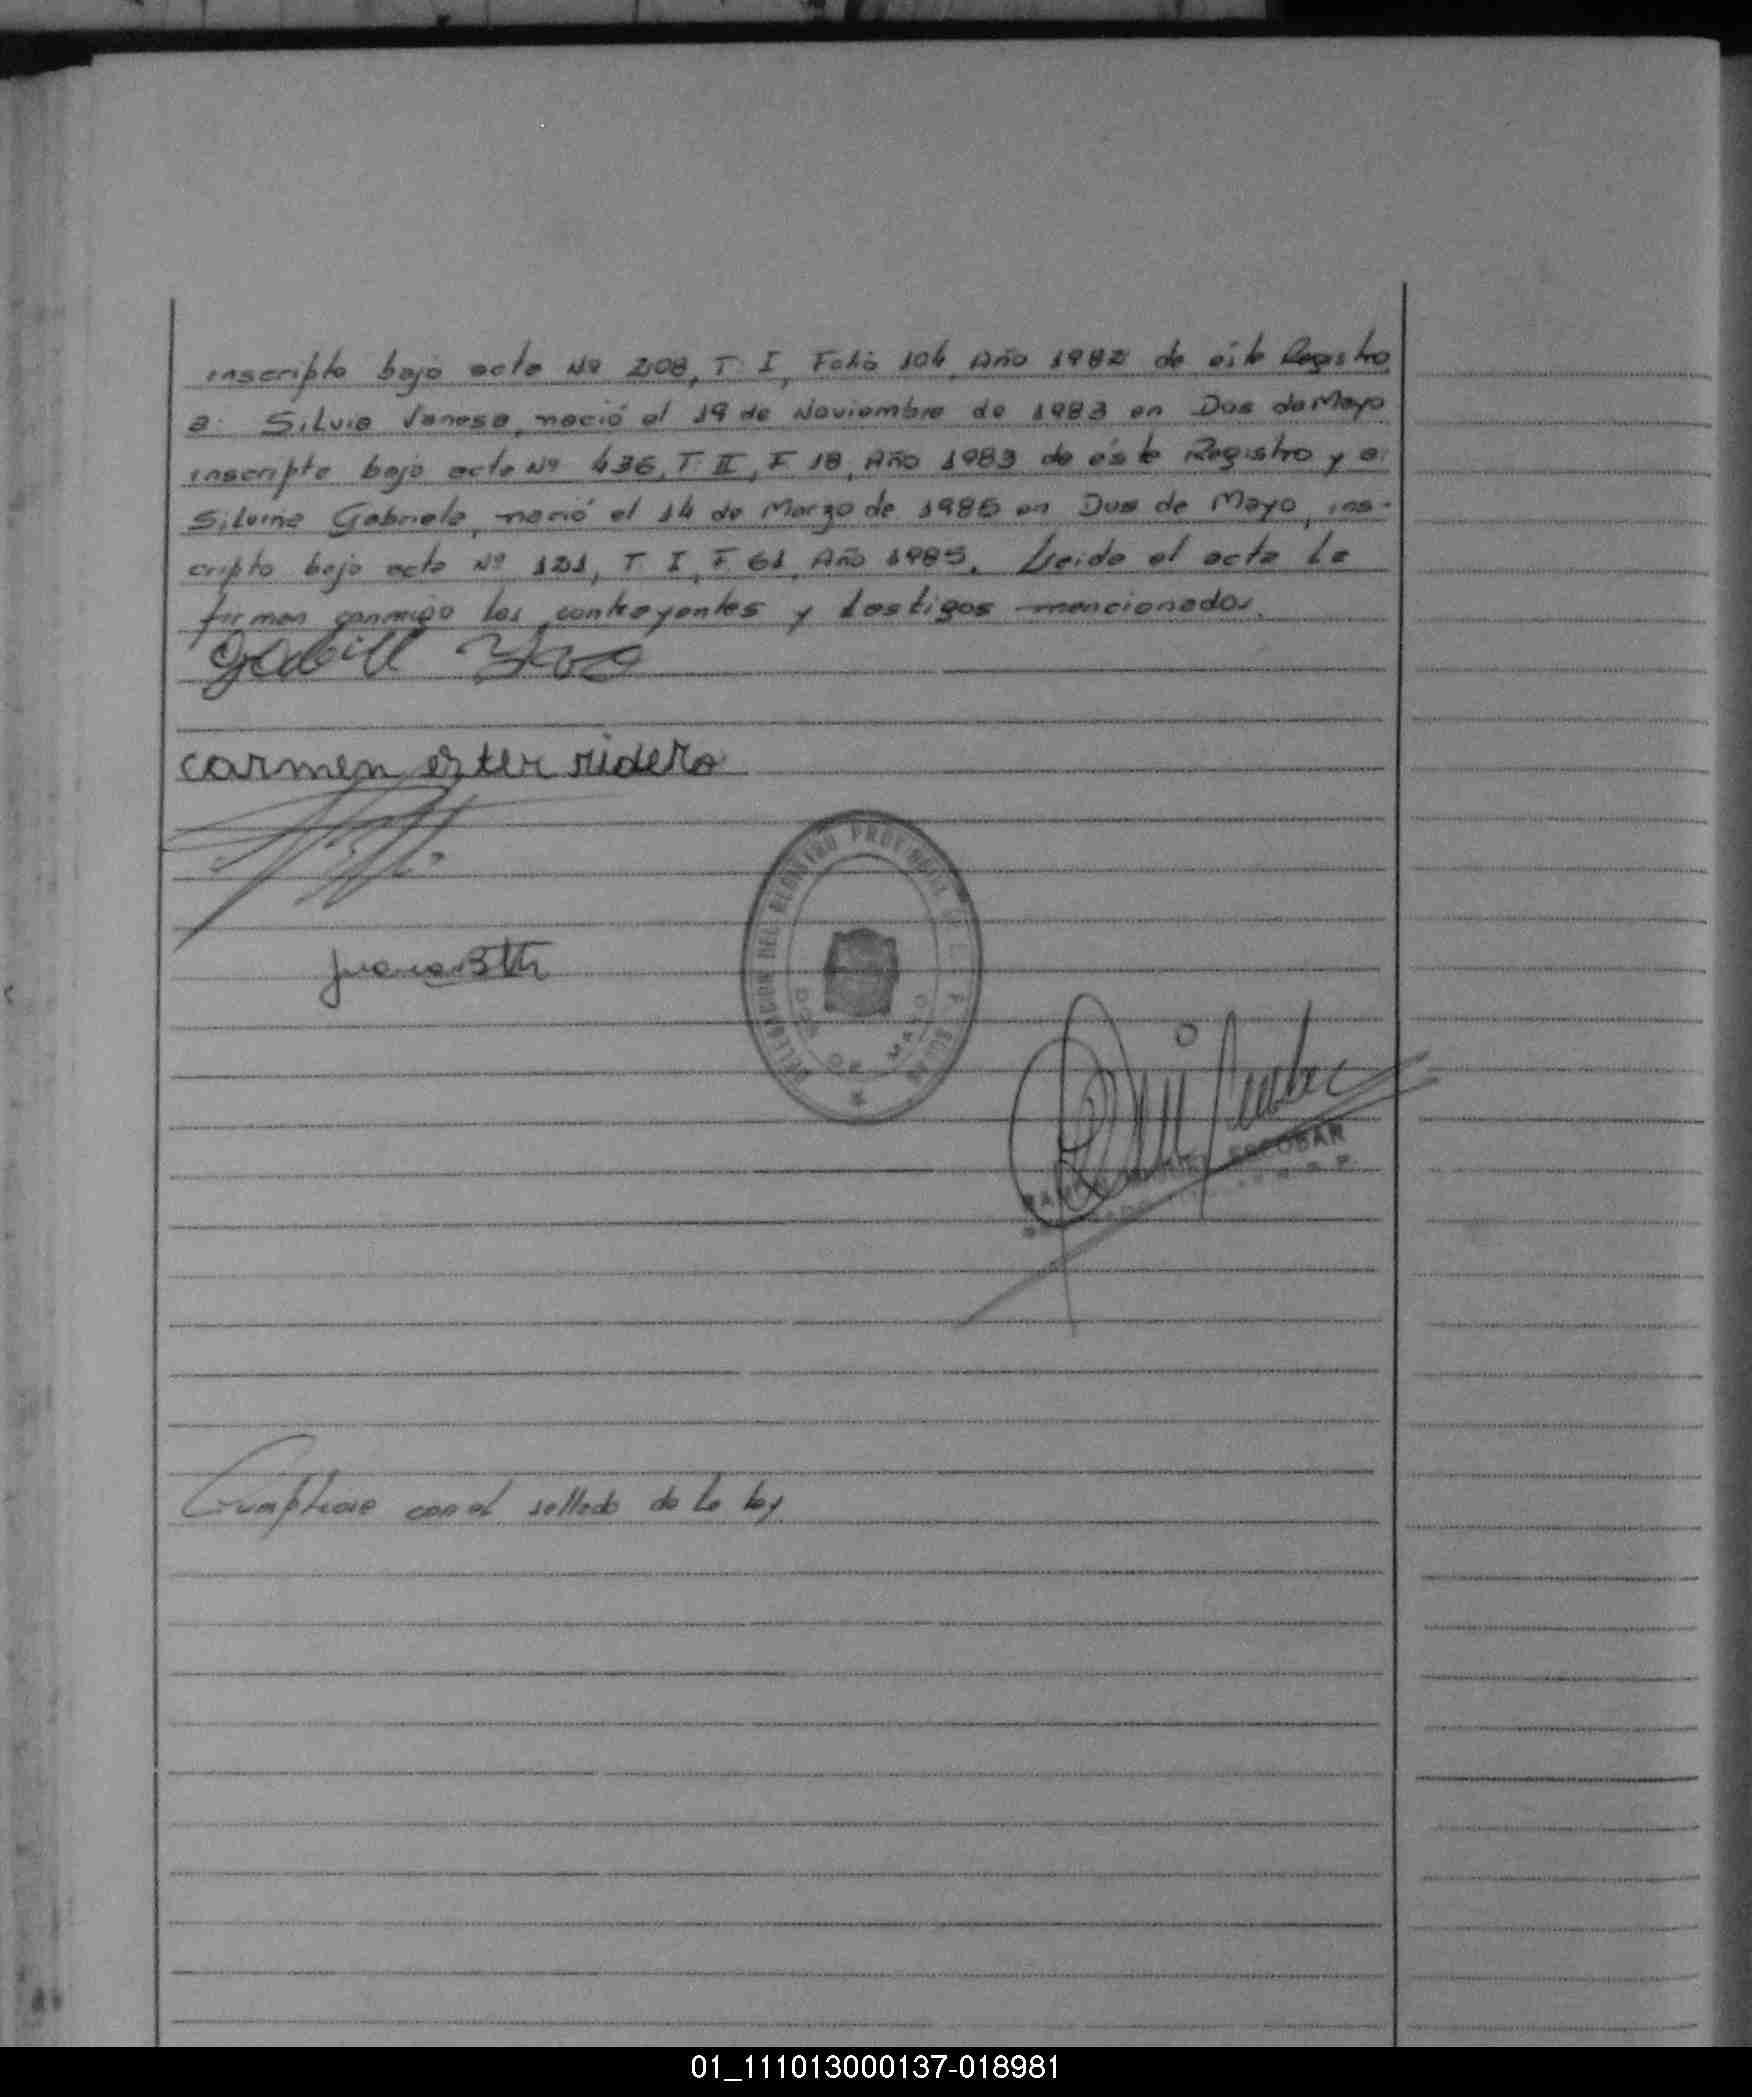 inscripto bajo acta Nº 208, T. I, Folio 104, Año 1982 de éste Registro
a: Silvia Vanesa, nació el 19 de Noviembre de 1983 en Dos de Mayo
inscripta bajo acta Nº 436, T. II, F. 18, Año 1983 de éste Registro y a:
Silvina Gabriela, nació el 14 de Marzo de 1985 en Dos de Mayo, ins-
cripta bajo acta Nº 121, T. I, F. 61, Año 1985. Leida el acta la
firman conmigo los contrayentes y testigos mencionados.
carmen ester ridero
DELEGACION DEL REGISTRO PROVINCIAL DE L
DOS DE MAYO
ESCOBAR
Cumplease con el sellado de la ley
01_111013000137-018981